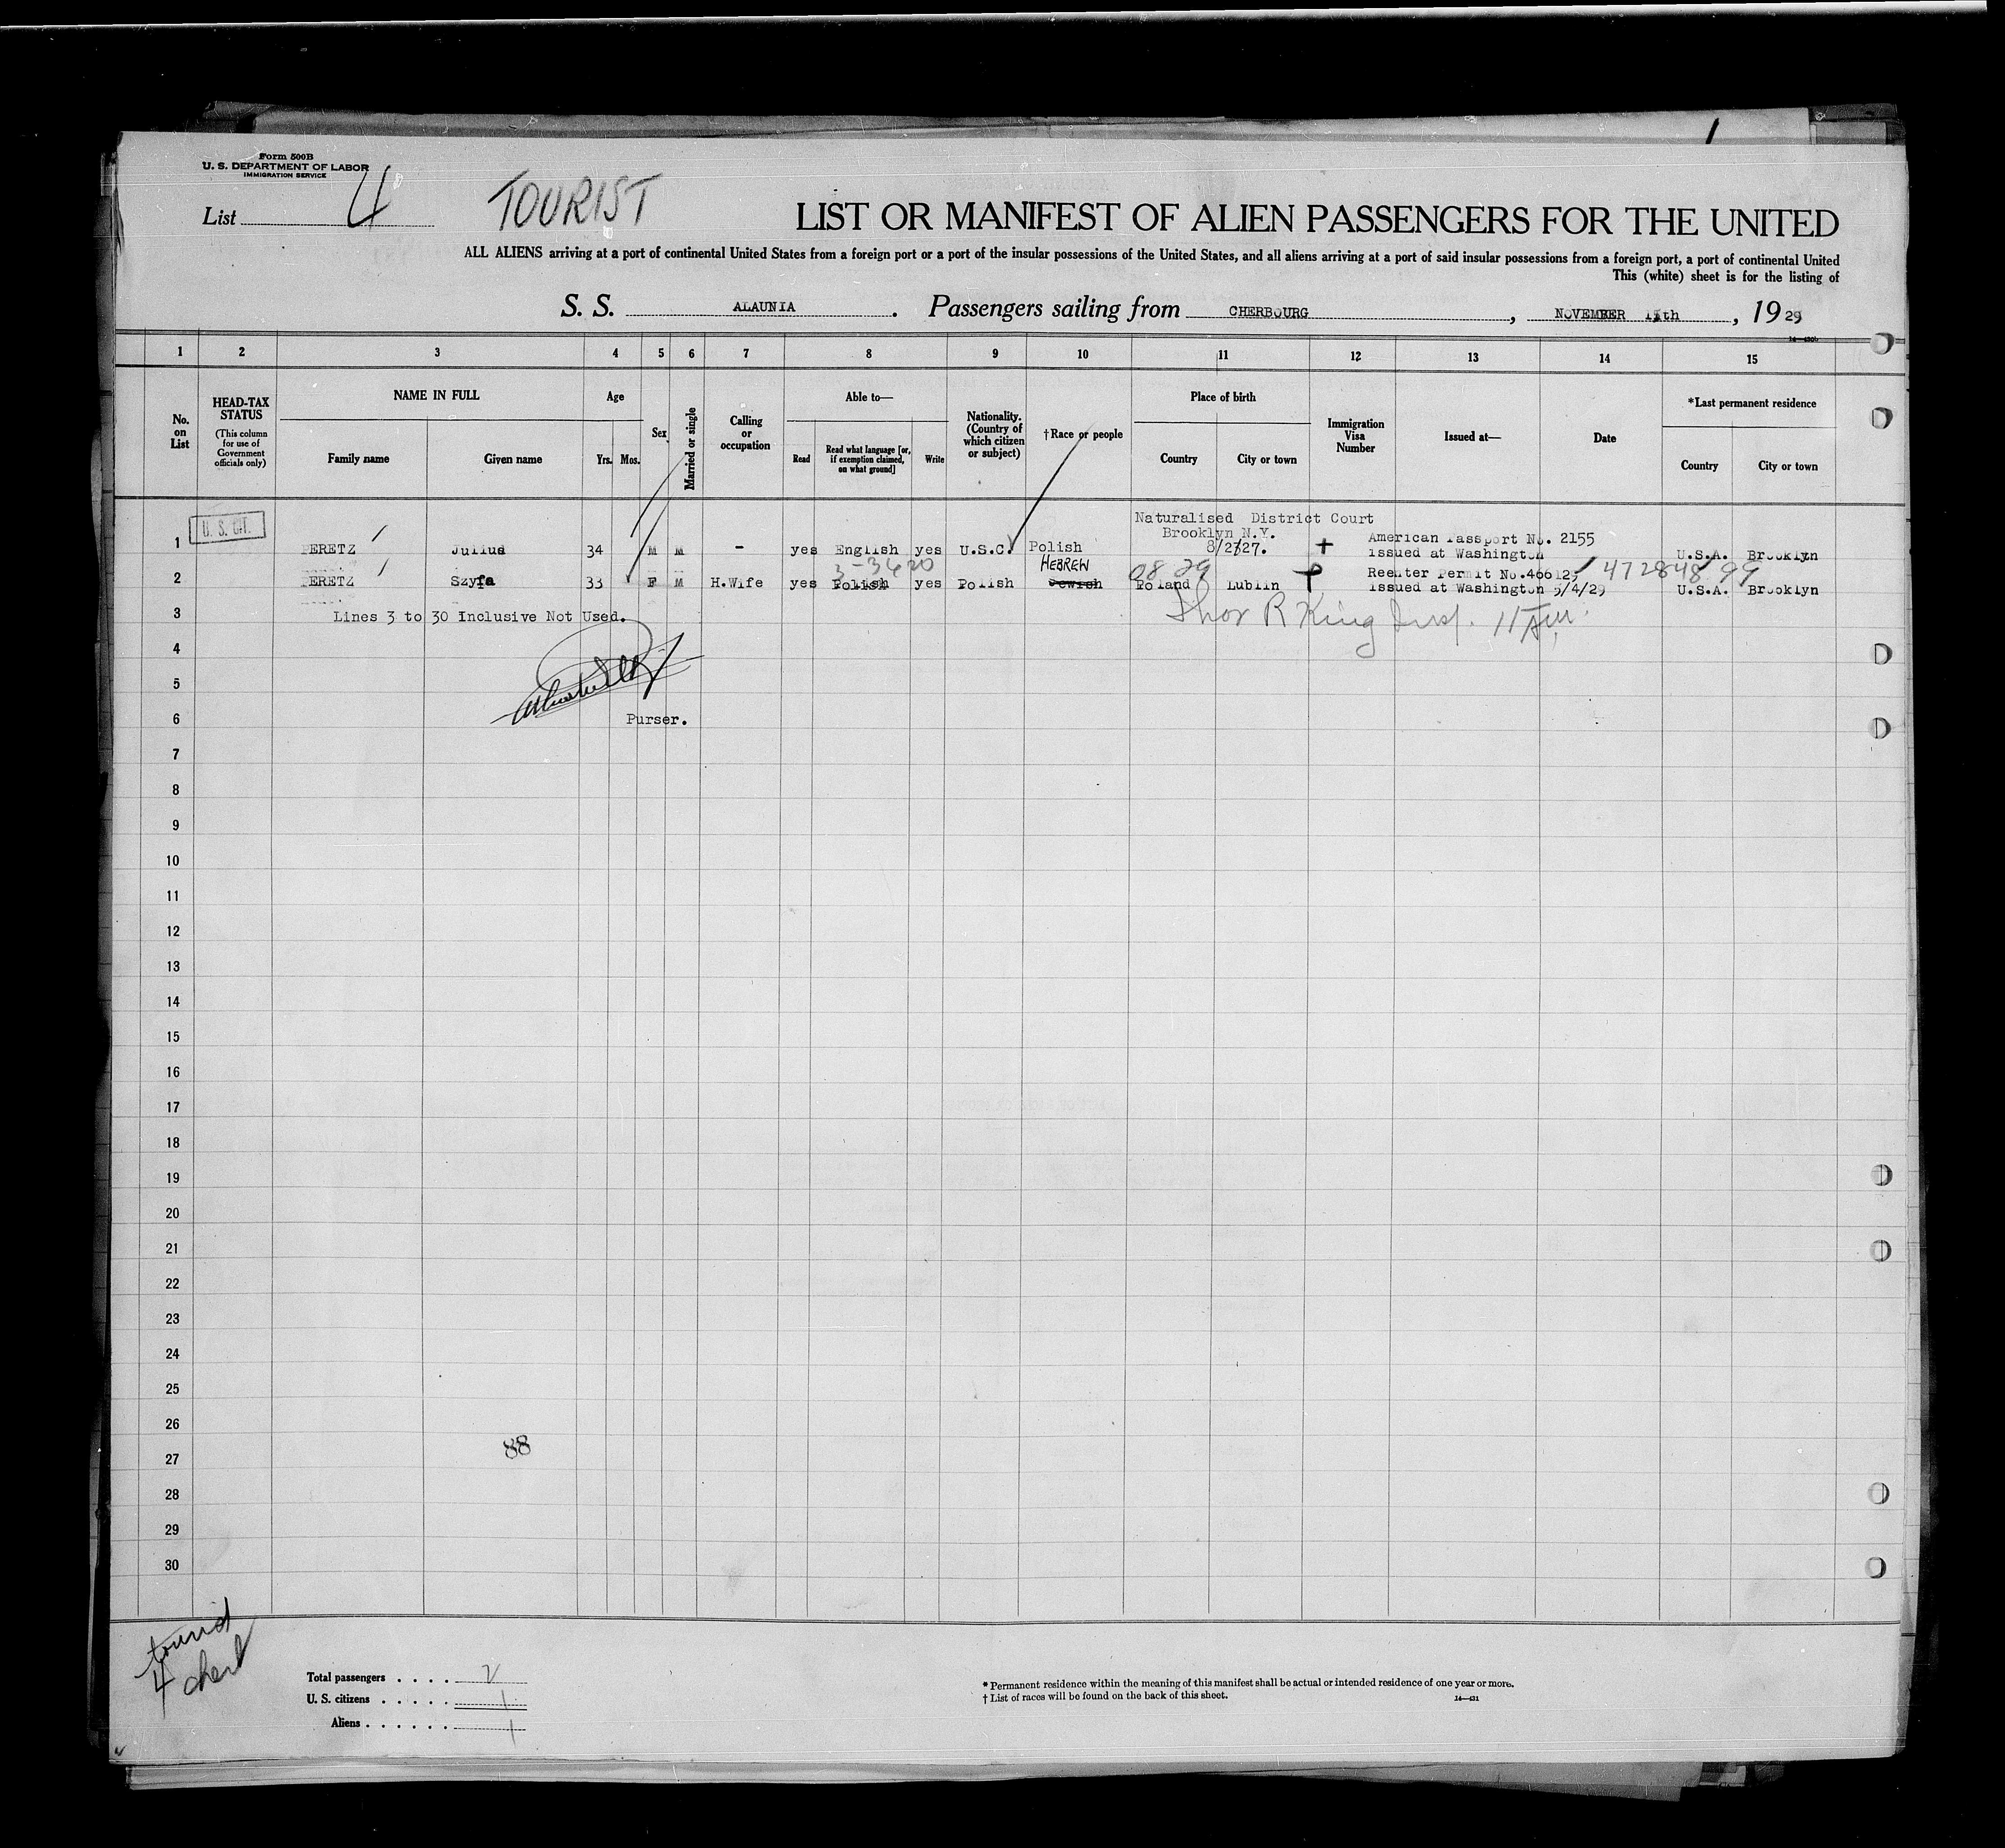 Form 500B
U. S. DEPARTMENT OF LABOR
IMMIGRATION SERVICE
List 4
TOURIST
LIST OR MANIFEST OF ALIEN PASSENGERS FOR THE UNITED
ALL ALIENS arriving at a port of continental United States from a foreign port or a port of the insular possessions of the United States, and all aliens arriving at a port of said insular possessions from a foreign port, a port of continental United
This (white) sheet is for the listing of
S. S. ALAUNIA. Passengers sailing from CHERBOURG, NOVEMBER, 1929
1 2 3 4 5 6 7 8 9 10 11 12 13 14 15
No. on List
HEAD-TAX STATUS (This column for use of Government officials only)
NAME IN FULL
Family name Given name
Age
Yrs. Mos.
Sex
Married or single
Calling or occupation
Able to—
Read
Read what language [or, if exemption claimed, on what ground]
Write
Nationality. (Country of which citizen or subject)
†Race or people
Place of birth
Country City or town
Immigration Visa Number
Issued at—
Date
*Last permanent residence
Country City or town
Naturalised District Court
Brooklyn N.Y.
1 U. S. CIT. PERETZ Julius 34 M M - yes English yes U.S.C. Polish 8/2/27. American Passport No. 2155
Issued at Washington U.S.A. Brooklyn
3-3620 HEBREW 08 29
2 PERETZ Szyfa 33 F M H.Wife yes Polish yes Polish Jewish Poland Lublin Reenter Permit No.466125 472848 99
Issued at Washington 5/4/29 U.S.A. Brooklyn
3 Lines 3 to 30 Inclusive Not Used.
Thos R King Insp.
4
5
6 Purser.
7
8
9
10
11
12
13
14
15
16
17
18
19
20
21
22
23
24
25
26
88
27
28
29
30
4
Total passengers . . . . 2
U. S. citizens . . . . . 1
Aliens . . . . . . 1
* Permanent residence within the meaning of this manifest shall be actual or intended residence of one year or more.
† List of races will be found on the back of this sheet.
14—431